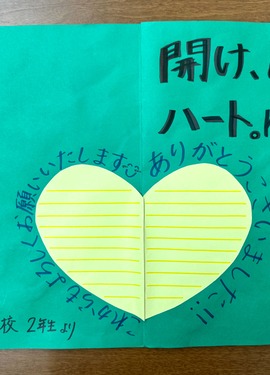 開け、
ハート。
ありがとうございました!!
これからもよろしくお願いいたします
校 2年生より